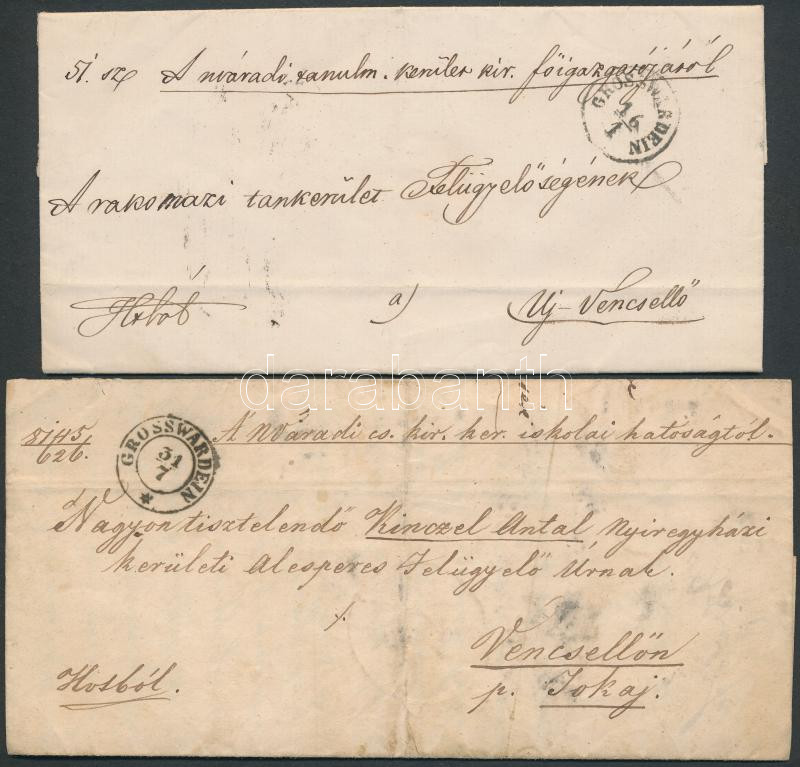 51. sz A nváradi tanulm. kerület kir. főigazgatójáról
GROSSWARDEIN
A rakomazi tankerület Felügyelőségének
a) Uj-Vencsellő
darabanth
GROSSWARDEIN
31
7
A' NVáradi cs. kir. ker. iskolai hatóságtól.
626.
Nagyon tisztelendő Kinczel Antal Nyiregyházi
kerületi Alesperes Felügyelő Úrnak.
Vencsellőn
Hivből.
p. Tokaj.